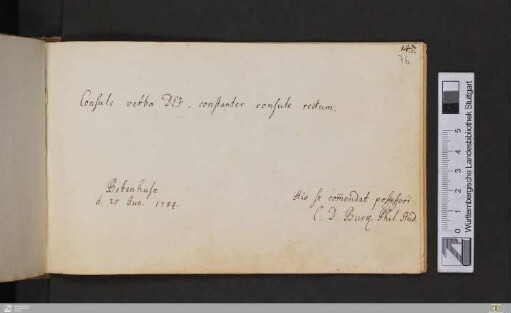 147.
76
Consule verba DEI. constanter consule rectum.
Bebenhusæ
d. 20 Jun. 1784.
His se com̄endat possessori
C. D. Burg. Phil. Stud.
Württembergische Landesbibliothek Stuttgart
0 1 2 3 4 5